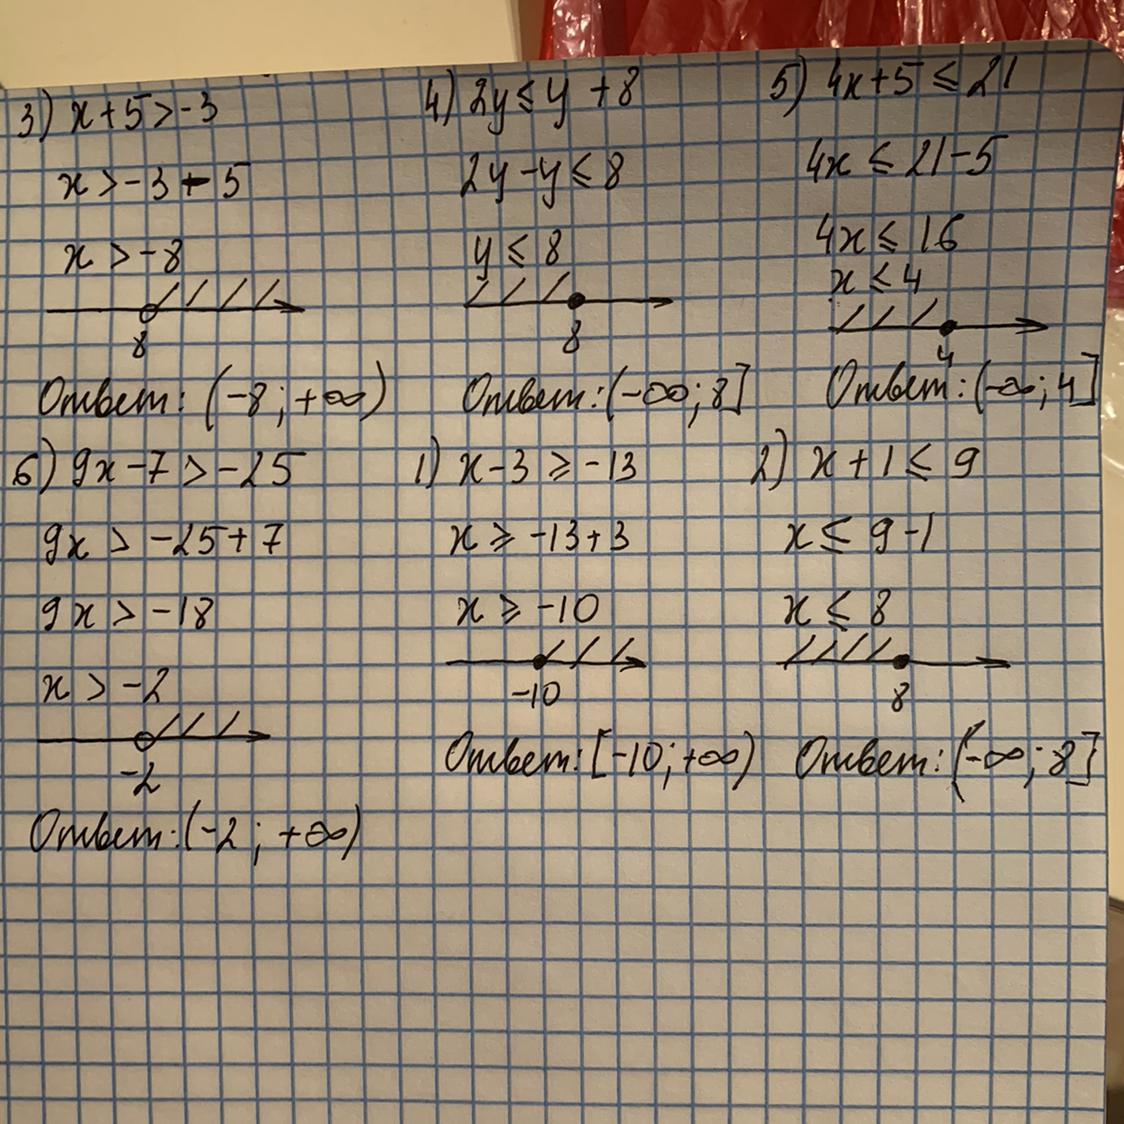 3) x+5>-3
x>-3-5
x>-8
8
Ответ: (-8; +∞)
4) 2y≤y+8
2y-y≤8
y≤8
8
Ответ: (-∞; 8]
5) 4x+5≤21
4x≤21-5
4x≤16
x≤4
4
Ответ: (-∞; 4]
6) 9x-7>-25
9x>-25+7
9x>-18
x>-2
-2
Ответ: (-2; +∞)
1) x-3≥-13
x≥-13+3
x≥-10
-10
Ответ: [-10; +∞)
2) x+1≤9
x≤9-1
x≤8
8
Ответ: (-∞; 8]